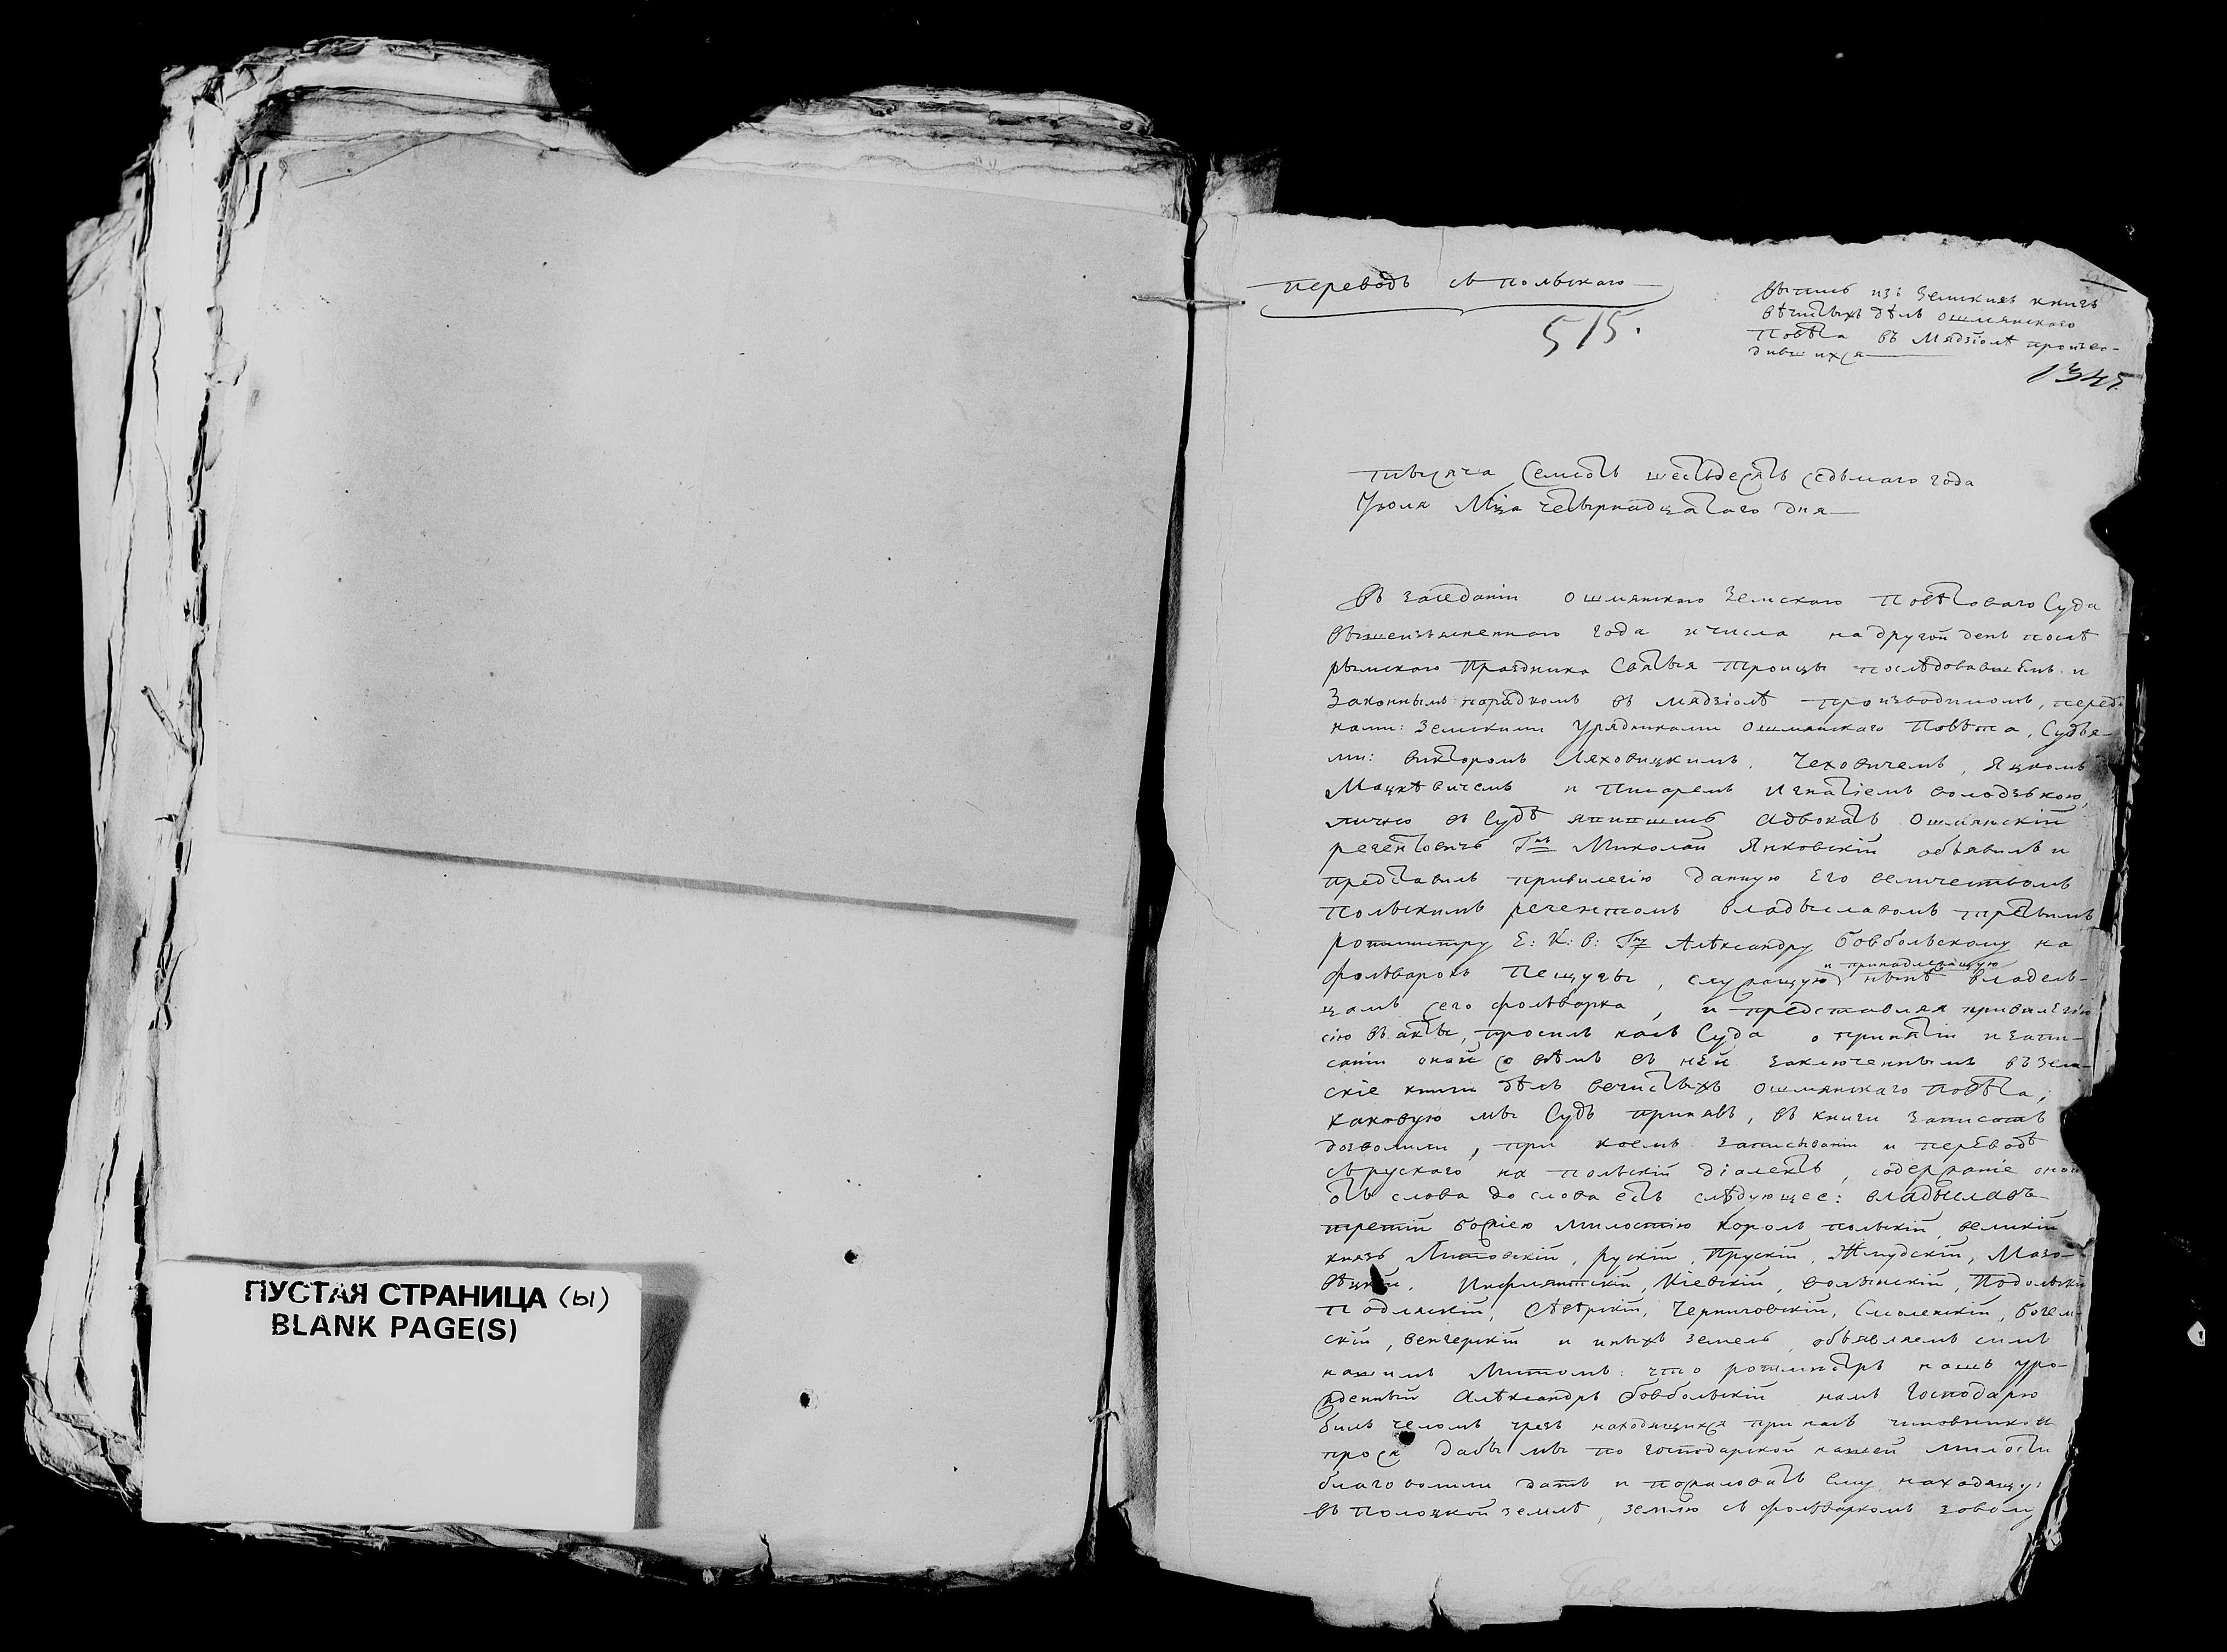 ПУСТАЯ СТРАНИЦА (ы)
BLANK PAGE(S)
переводъ съ польскаго
515.
Выпись изъ Земскихъ книгъ
вѣчистыхъ дѣлъ ошмянскаго
Повѣта въ Мядзіолѣ произво-
дившихся
1345
тысяча Семсотъ шестьдесятъ седьмаго года
Іюля Мца четырнадцатаго дня
Въ заседаніи ошмянскаго Земскаго Повѣтоваго Суда
вышеизъясненнаго года и числа на другой день послѣ
рымскаго Праздника Святыя Троицы послѣдовавшемъ и
Законнымъ порядкомъ въ мядзіолѣ производимомъ, передъ
нами: Земскими Урядниками ошмянскаго Повѣта, Судья-
ми: викторомъ Ляховицкимъ, Чеховичемъ, Яцкомъ
Мацкѣвичемъ и Писаремъ Игнатіемъ володзькою,
лично въ Судѣ явившись Адвокатъ Ошмянскій
регентовичъ Гнъ Миколай Янковскій объявилъ и
представилъ привилегію данную Его величествомъ
Польскимъ регентомъ владыславомъ третьимъ
ротмистру Е: К: В: Гну Алѣксандру бовбольскому на
фольварокъ Пещугы, служащую и принадлежащую нынѣ владель-
цамъ сего фольварка, и представляя привилегію
сію въ акты, просилъ насъ Суда о принятіи и запи-
саніи оной со всѣмъ въ ней заключеннымъ въ Зем-
скіе книги дѣлъ вечистыхъ ошмянскаго повѣта;
каковую мы Судъ принявъ, въ книги записать
дозволили, при коемъ записываніи и переводѣ
съ рускаго на польскій діалектъ, содержаніе оной
отъ слова до слова есть слѣдующее: владыславъ
третій божіею милостію король польскій, великій
князь Литовскій, рускій, Прускій, Жмудскій, Мазо-
вѣцкій, Инфлянтскій, Кіевскій, волынскій, Подольскій
Подляскій, Сѣвѣрскій, Черниговскій, Смоленскій, богем-
скій, венгерскій и иныхъ земель, объявляемъ симъ
нашимъ Листомъ: что ротмистръ нашъ уро-
жденный Алѣксандръ бовбольскій намъ Господарю
билъ челомъ чрезъ находящихся при насъ чиновниковъ
прося дабы мы по господарской нашей милости
благоволили дать и пожаловать ему находящу:
въ Полоцкой землѣ, землю съ фольваркомъ зовому